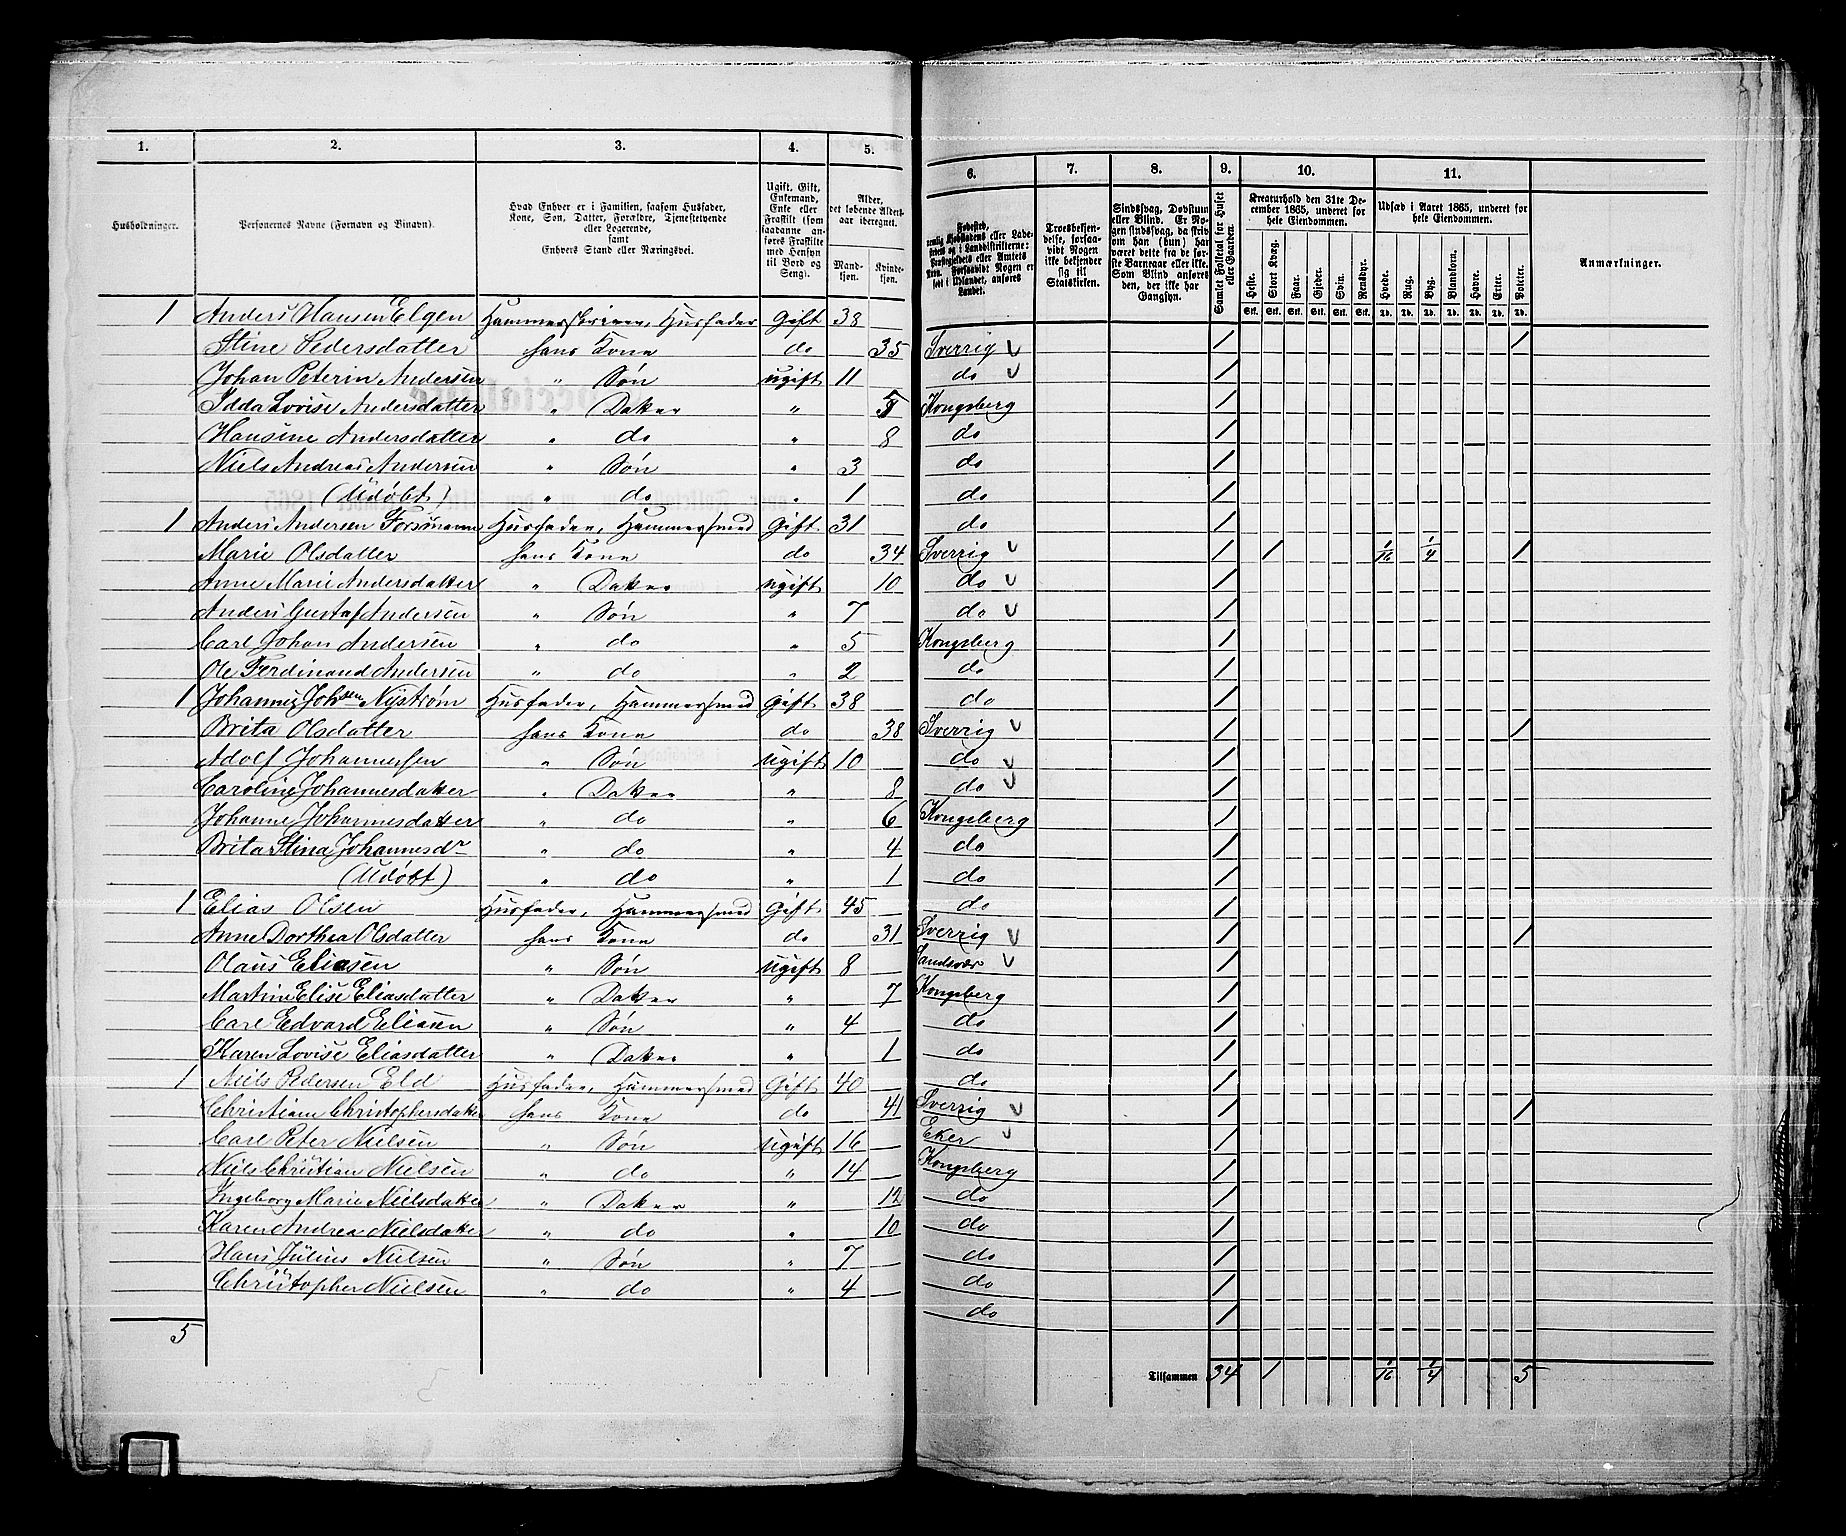 1. 2. 3. 4. 5. 6. 7. 8. 9. 10. 11.
Husholdninger.
Personernes Navne (Fornavn og Binavn).
Hvad Enhver er i Familien, saasom Husfader, Kone, Søn, Datter, Forældre, Tjenestetyende eller Logerende, samt Enhvers Stand eller Næringsvei.
Ugift, Gift, Enkemand, Enke eller Fraskilt (som saadanne anføres Fraskilte med Hensyn til Bord og Seng).
Alder, det løbende Aldersaar iberegnet.
Mandkjøn. Kvindekjøn.
Troesbekjendelse, forsaavidt Nogen ikke bekjender sig til Statskirken.
Sindssvag, Døvstum eller Blind. Er Nogen sindssvag, da skrives om han (hun) har været dette fra de første Barneaar eller ikke. Som Blind anføres den, der ikke har Gangsyn.
Samlet Folketal for Huset eller Gaarden.
Kreaturhold den 31te December 1865, underet for hele Eiendommen.
Heste. Stort Kvæg. Faar. Gjeder. Svin. Rensdyr.
Udsæd i Aaret 1865, underet for hele Eiendommen.
Hvede. Rug. Byg. Blandkorn. Havre. Erter. Poteter.
Anmærkninger.
1 Anders Hansen Elgen Hammerskriver, Husfader Gift 38
Stine Pedersdatter hans Kone do 35 Sverrig v 1 1
Johan Peterin Andersen " Søn ugift 11 do v 1
Idda Lovise Andersdatter " Datter " 5 Kongsberg 1
Hansine Andersdatter " do " 8 do 1
Niels Andreas Andersen " Søn " 3 do 1
(Udøbt) " do " 1 do 1
1 Anders Andersen Forsmann Husfader, Hammersmed Gift 31 do 1
Marie Olsdatter hans Kone do 34 Sverrig v 1 1 1/16 1/4 1
Anne Marie Andersdatter " Datter ugift 10 do v 1
Anders Gustaf Andersen " Søn " 7 do v 1
Carl Johan Andersen " do " 5 Kongsberg 1
Ole Ferdinand Andersen " do " 2 do 1
1 Johannes Johsen Nystrøm Husfader, Hammersmed Gift 38 do 1
Brita Olsdatter hans Kone do 38 Sverrig v 1 1
Adolf Johannessen " Søn ugift 10 do v 1
Caroline Johannesdatter " Datter " 8 do v 1
Johanne Johannesdatter " do " 6 Kongsberg 1
Brita Stina Johannesdr " do " 4 do 1
(Udøbt) " do " 1 do 1
1 Elias Olsen Husfader, Hammersmed Gift 45 do 1
Anne Dorthea Olsdatter hans Kone do 31 Sverrig v 1 1
Olaus Eliasen " Søn ugift 8 Sandsvær v 1
Martine Elise Eliasdatter " Datter " 7 Kongsberg 1
Carl Edvard Eliasen " Søn " 4 do 1
Karen Lovise Eliasdatter " Datter " 1 do 1
1 Niels Pedersen Eld Husfader, Hammersmed Gift 40 do 1
Christiane Christophersdatter hans Kone do 41 Sverrig v 1 1
Carl Peter Nielsen " Søn ugift 16 Eker v 1
Niels Christian Nielsen " do " 14 Kongsberg 1
Ingeborg Marie Nielsdatter " Datter " 12 do 1
Karen Andrea Nielsdatter " do " 10 do 1
Hans Julius Nielsen " Søn " 7 do 1
Christopher Nielsen " do " 4 do 1
do 1
5
Tilsammen 34 1 1/16 1/4 5